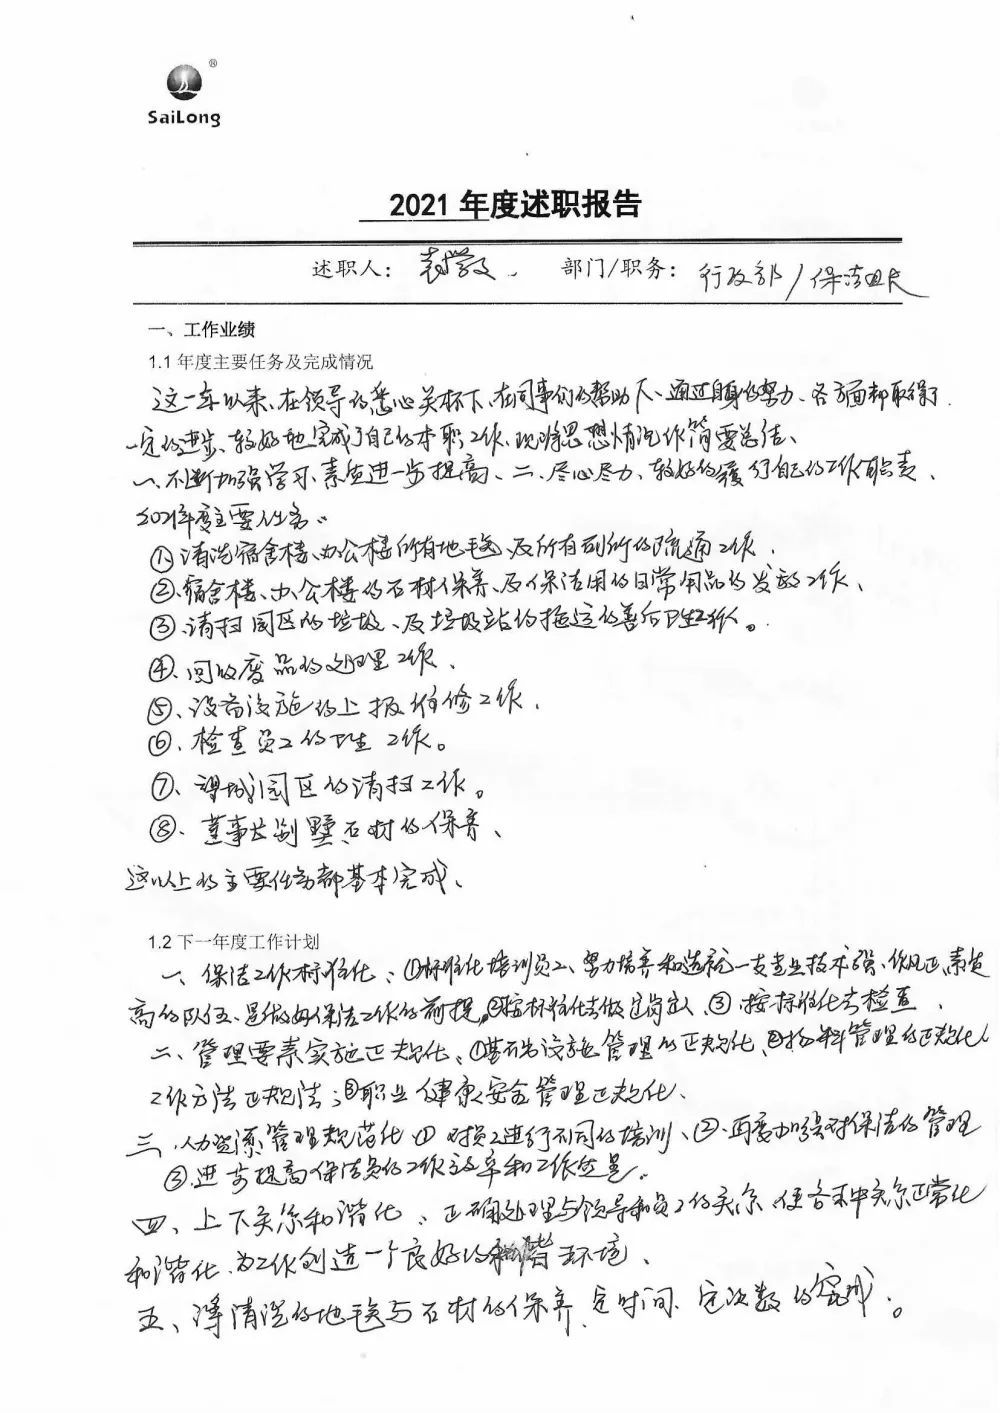 ®
SaiLong
2021 年度述职报告
述职人：袁学文. 部门/职务：行政部/保洁班长
一、工作业绩
1.1 年度主要任务及完成情况
这一年以来、在领导的悉心关怀下、在同事们的帮助下、通过自身的努力、各方面都取得了
一定的进步、较好地完成了自己的本职工作、现将思想情况作简要总结、
一、不断加强学习、素质进一步提高、二、尽心尽力、较好的履行自己的工作职责、
2021年度主要任务：
①、清洗宿舍楼、办公楼所有地毯、及所有厕所的疏通工作.
②、宿舍楼、办公楼的石材保养、及保洁用的日常用品的发放工作、
③、清扫园区的垃圾、及垃圾站的拖运的善后卫生工作。
④、回收废品的处理工作、
⑤、设备设施的上报维修工作.
⑥、检查员工的卫生工作。
⑦、望城园区的清扫工作。
⑧、董事长别墅石材的保养、
这以上的主要任务都基本完成、
1.2 下一年度工作计划
一、保洁工作标准化、①标准化培训员工、努力培养和造就一支专业技术强、作风正、素质
高的队伍、是做好保洁工作的前提,②按标准化去做定岗定人、③按标准化去检查.
二、管理要素实施正规化、①基础设施管理的正规化、②物料管理的正规化
工作方法正规法;③职业健康安全管理正规化、
三、人力资源管理规范化①对员工进行不同的培训、②、再度加强对保洁的管理
③、进步提高保洁员的工作效率和工作质量.
四、上下关系和谐化、正确处理与领导和员工的关系、使各种关系正常化
和谐化、为工作创造一个良好的和谐环境、
五、清洗的地毯与石材的保养、定时间、定次数的完成。